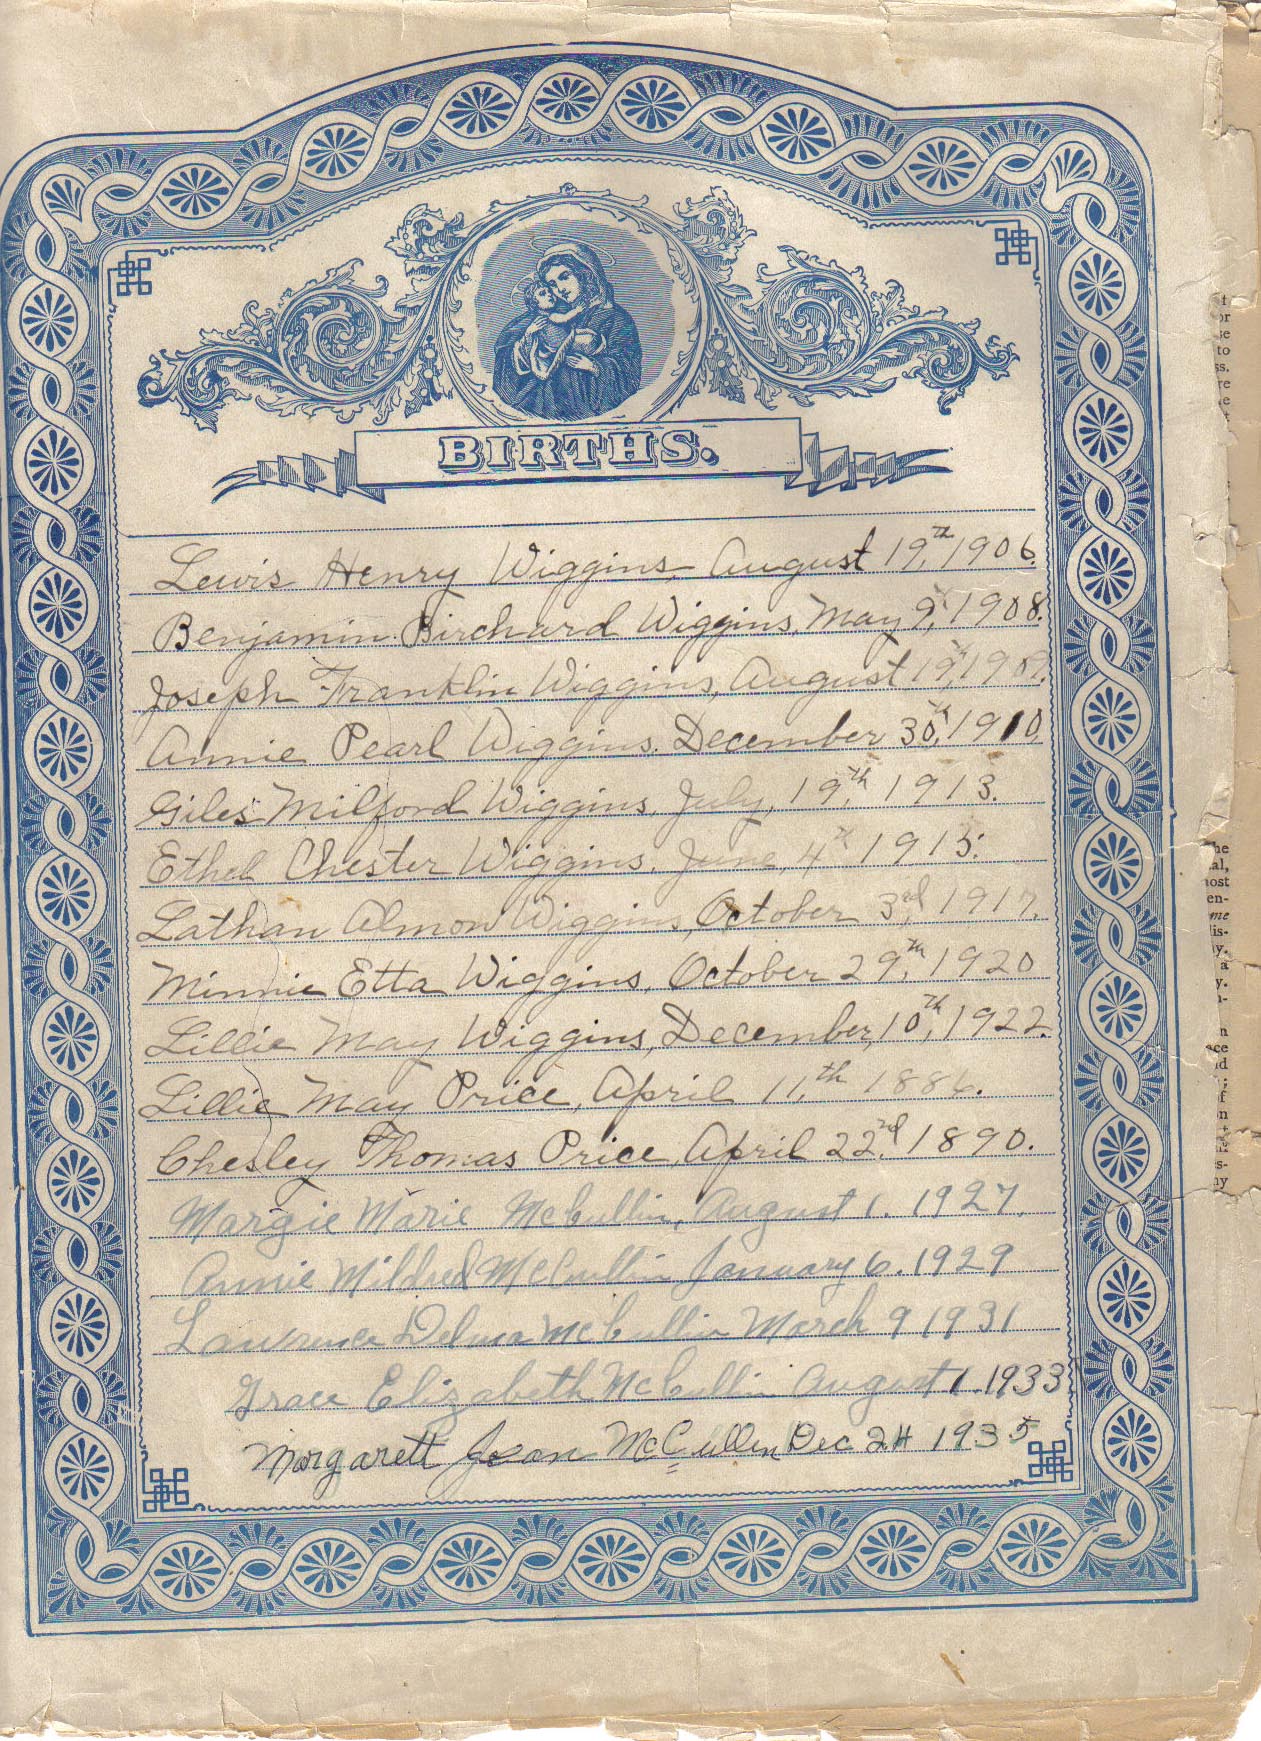 BIRTHS.
Lewis Henry Wiggins, August 19,th 1906.
Benjamin Birchard Wiggins, May 9,th 1908.
Joseph Franklin Wiggins, August 19,th 1909.
Annie Pearl Wiggins. December 30,th 1910.
Giles Milford Wiggins, July, 19,th 1913.
Ethel Chester Wiggins, June, 4th 1915.
Lathan Almon Wiggins, October 3rd, 1917.
Minnie Etta Wiggins, October 29,th 1920
Lillie May Wiggins, December, 10,th 1922.
Lillie May Price, April 11,th 1886.
Chesley Thomas Price, April 22,nd 1890.
Margie Marie McCullin, August 1. 1927.
Annie Mildred McCullin January 6. 1929
Lawrence Delma McCullin March 9 1931
Grace Elizabeth McCullin August 1 1933
Margarett Jean McCullen Dec 24 1935